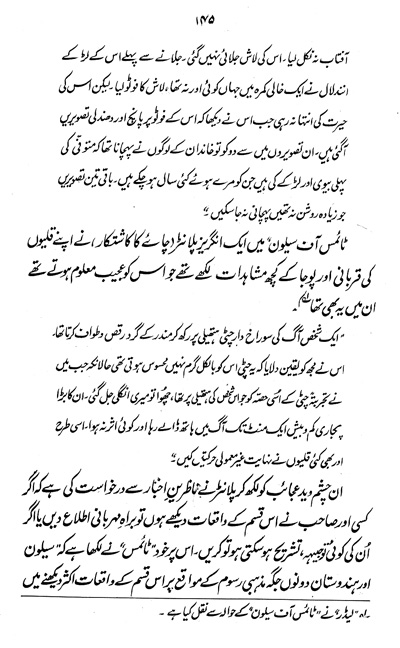 ۱۴۵
آفتاب نہ نکل لیا۔ اس کی لاش جلائی نہیں گئی۔ جلانے سے پہلے اس کے لڑکا کے
انند لال نے ایک خالی کمرہ میں جہاں کوئی اور نہ تھا، لاش کا فوٹو لیا۔ لیکن اس کی
حیرت کی انتہا نہ رہی جب اس نے دیکھا کہ اس کے فوٹو پر پانچ اور دھندلی تصویریں
آگئی ہیں۔ ان تصویروں میں سے دو کو تو خاندان کے لوگوں نے پہچانا تھا کہ متوفی کی
پہلی بیوی اور لڑکے کی ہیں جن کو مرے ہوئے کئی سال ہو چکے ہیں۔ باقی تین تصویریں
جو زیادہ روشن نہ تھیں پہچانی نہ جا سکیں "
ٹائمس آف سیلون میں ایک انگریز پلانٹر (چائے کا کاشتکار) نے اپنے قلیوں
کی قربانی اور پوجا کے کچھ مشاہدات لکھے تھے جو اس کو عجیب معلوم ہوتے تھے
ان میں یہ بھی تھا۱ـہ
"ایک شخص آگ کی سوراخ دار چٹی ہتھیلی پر رکھ کر مندر کے گرد رقص و طواف کرتا تھا۔
اس نے مجھ کو یقین دلایا کہ یہ چٹی اس کو بالکل گرم نہیں محسوس ہوتی تھی حالانکہ جب میں
نے تجربۃً چٹی کے اسی حصہ کو جو اس شخص کی ہتھیلی پر تھا، چھوا تو میری انگلی جل گئی۔ ان کا بڑا
پجاری کم و بیش ایک منٹ تک آگ میں ہاتھ ڈالے رہا اور کوئی اثر نہ ہوا۔ اسی طرح
اور بھی کئی قلیوں نے نہایت غیر معمولی حرکتیں کیں "
ان چشم دید عجائب کو لکھ کر پلانٹر نے ناظرین اخبار سے درخواست کی ہے کہ اگر
کسی اور صاحب نے اس قسم کے واقعات دیکھے ہوں تو براہ مہربانی اطلاع دیں یا اگر
اُن کی کوئی توجیہہ، تشریح ہو سکتی ہو تو کریں۔ اس پر خود "ٹائمس" نے لکھا ہے کہ "سیلون
اور ہندوستان دونوں جگہ مذہبی رسوم کے مواقع پر اس قسم کے واقعات اکثر دیکھنے میں
۱ـہ "لیڈر" نے "ٹائمس آف سیلون" کے حوالہ سے نقل کیا ہے ۔